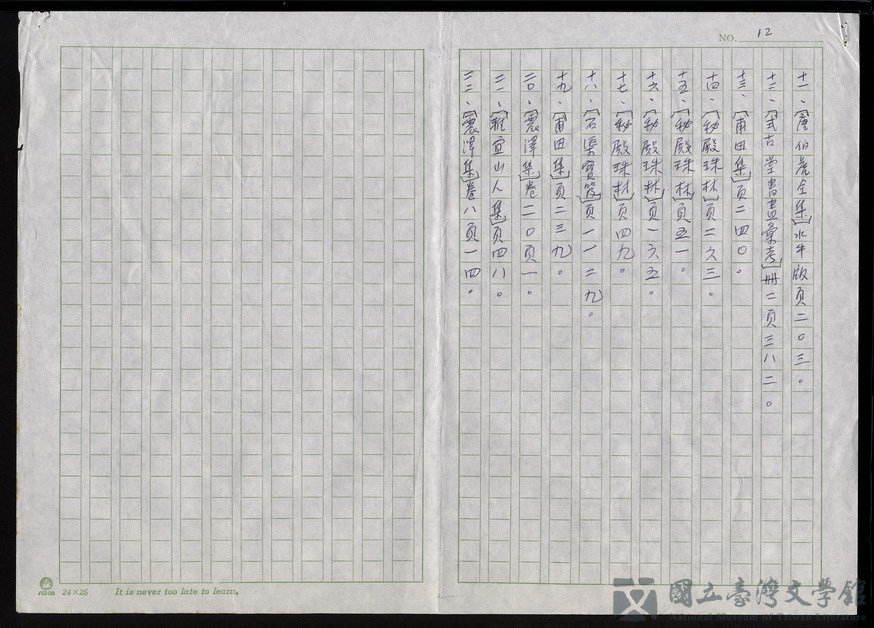 NO. 12
十一、〔唐伯虎全集〕水牛版頁二0三。
十二、〔式古堂書畫彙考〕冊二頁三八二。
十三、〔甫田集〕頁二四0。
十四、〔秘殿珠林〕頁二六三。
十五、〔秘殿珠林〕頁五一。
十六、〔秘殿珠林〕頁一六五。
十七、〔秘殿珠林〕頁四九。
十八、〔石渠寶笈〕頁一一二九。
十九、〔甫田集〕頁二三九。
二0、〔震澤集〕卷二0頁一。
二一、〔雅宜山人集〕頁四八。
二二、〔震澤集〕卷八頁一四。
24×25 It is never too late to learn.
國立臺灣文學館
National Museum of Taiwan Literature